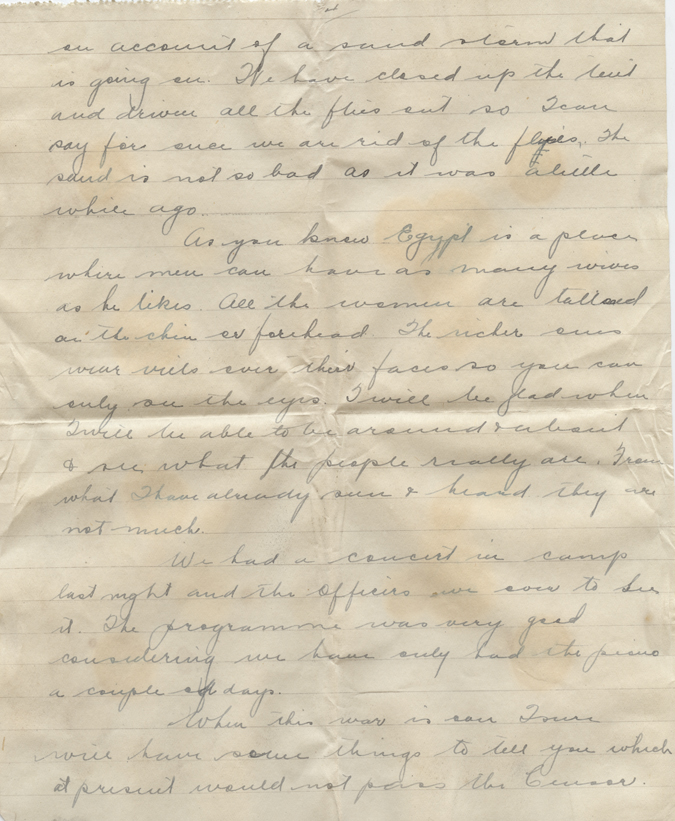 on account of a sand storm that
is going on. We have closed up the tent
and driven all the flies out so I can
say for once we are rid of the flies. The
sand is not so bad as it was a little
while ago.
As you know Egypt is a place
where men can have as many wives
as he likes. All the women are tattooed
on the chin or forehead. The richer ones
wear viels over their faces so you can
only see the eyes. I will be glad when
I will be able to be around & about
& see what the people really are. From
what I have already seen & heard they are
not much.
We had a concert in camp
last night and the Officers were over to see
it. The programme was very good
considering we have only had the piano
a couple of days.
When this war is over I sure
will have some things to tell you which
at present would not pass the Censor.